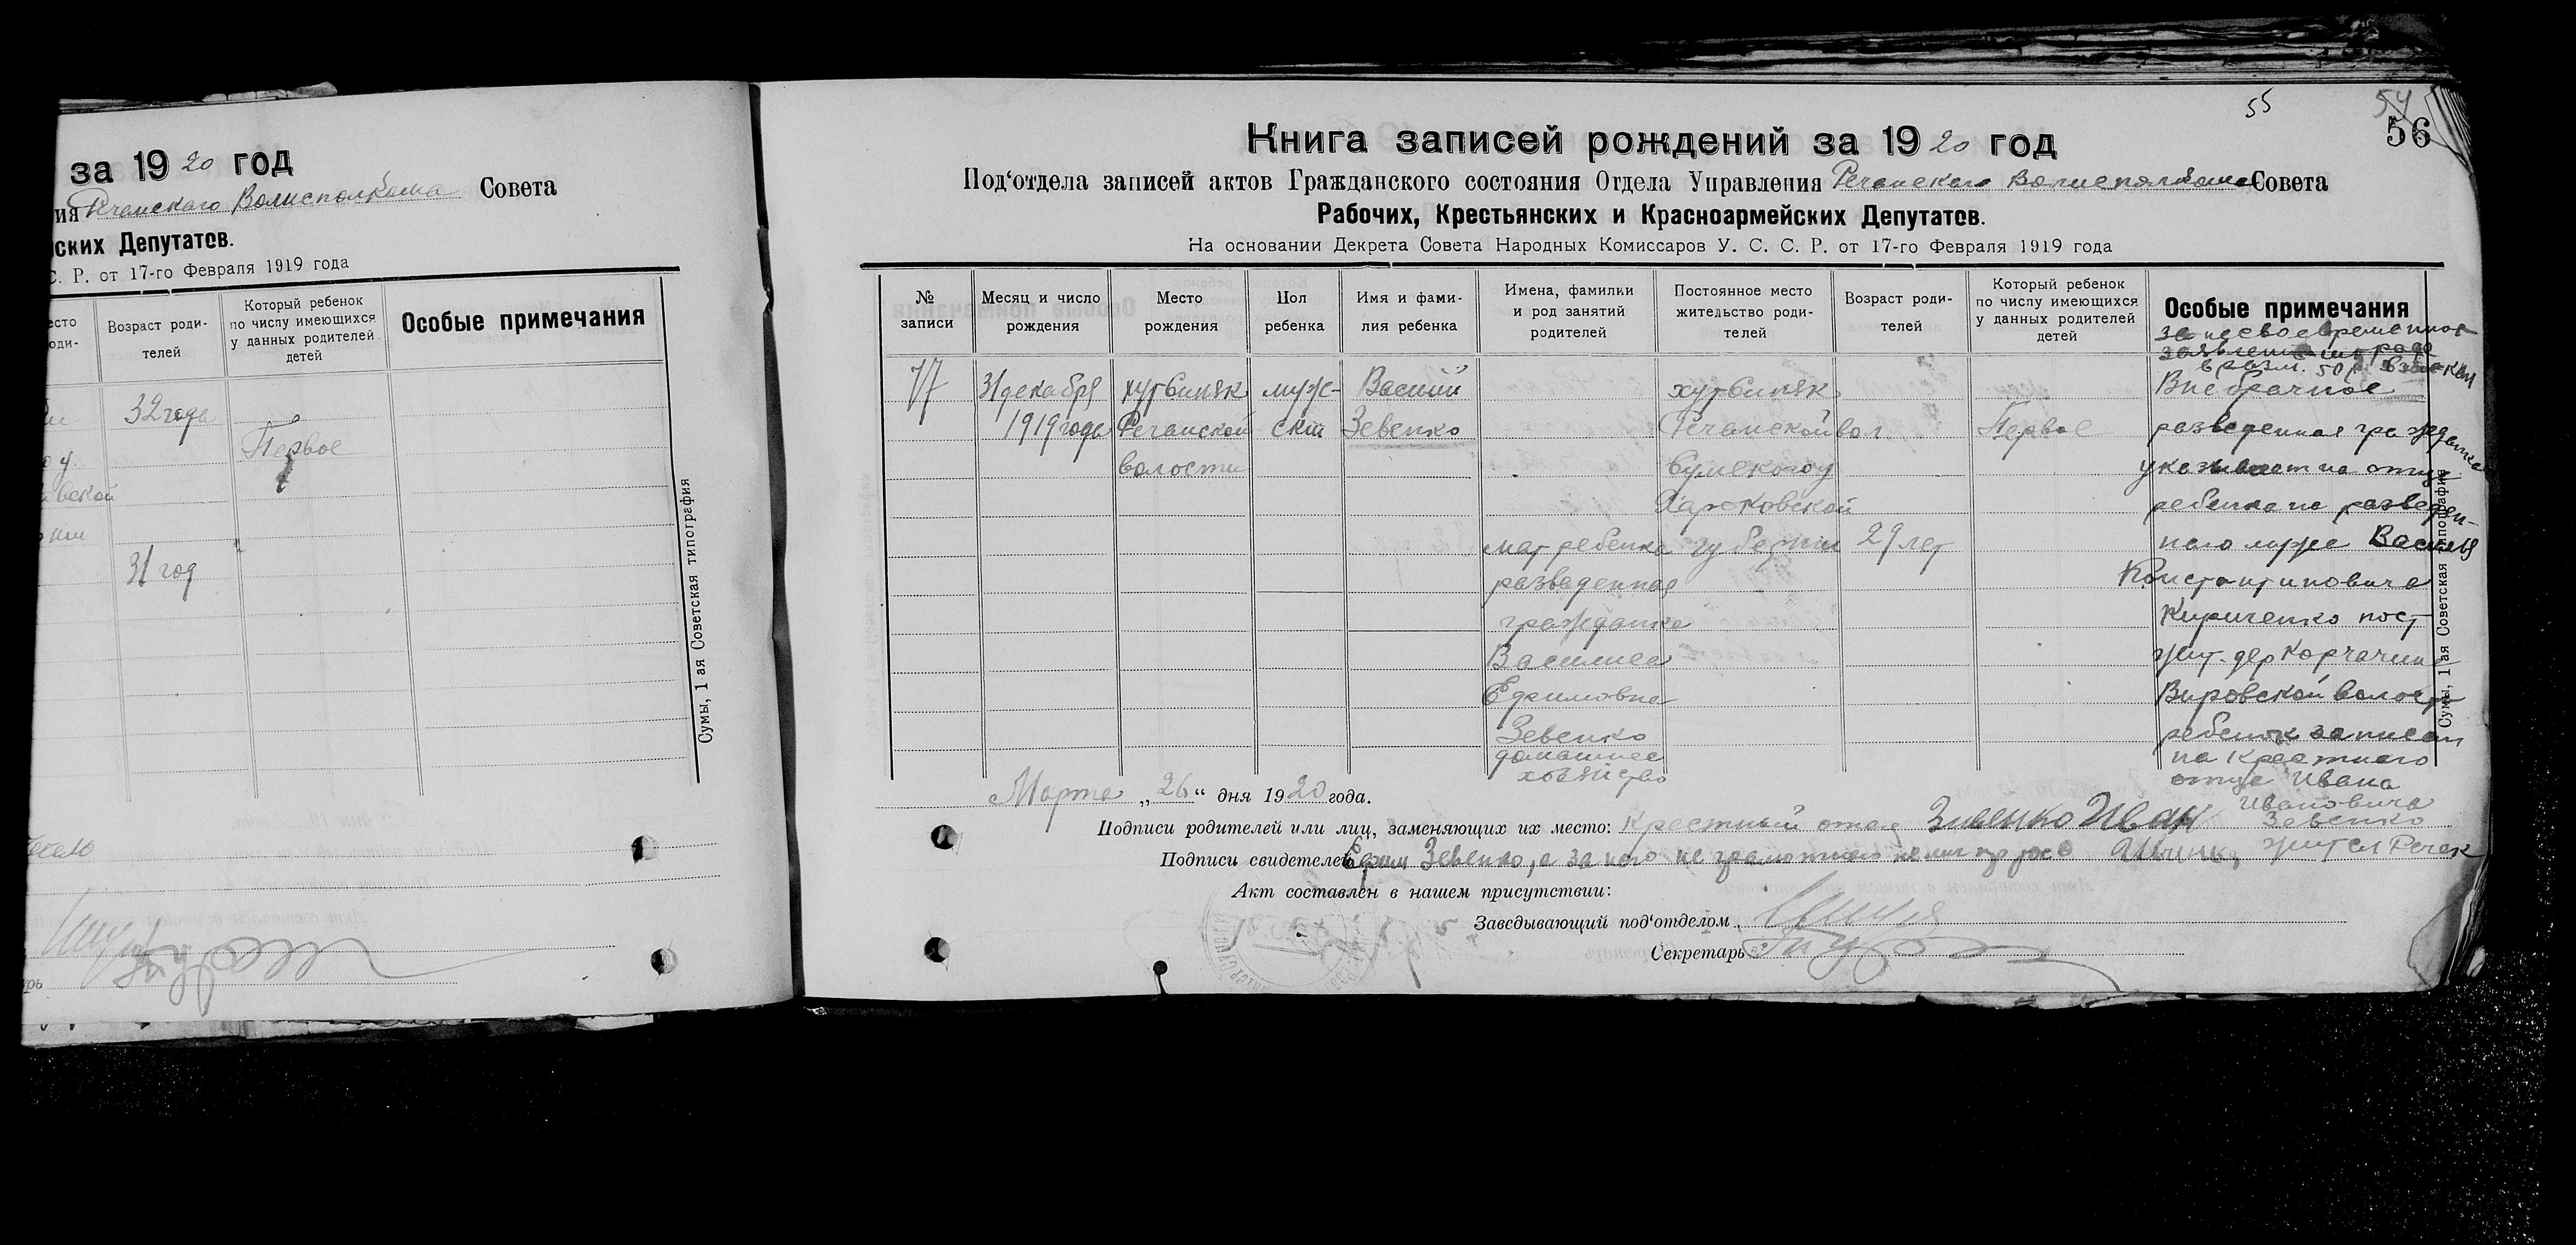 за 1920 год
ия Речанского Волисполкома Совета
ских Депутатов.
С. Р. от 17-го Февраля 1919 года
есто
оди-
Возраст роди-
телей
Который ребенок
по числу имеющихся
у данных родителей
детей
Особые примечания
32 года
Первое
о у.
овской
31 год
Сумы, 1-ая Советская типография
рь
55
54
56
Книга записей рождений за 1920 год
Под‘отдела записей актов Гражданского состояния Отдела Управления Речанского Волисполкома Совета
Рабочих, Крестьянских и Красноармейских Депутатов.
На основании Декрета Совета Народных Комиссаров У. С. С. Р. от 17-го Февраля 1919 года
№
записи
Месяц и число
рождения
Место
рождения
Пол
ребенка
Имя и фами-
лия ребенка
Имена, фамилии
и род занятий
родителей
Постоянное место
жительство роди-
телей
Возраст роди-
телей
Который ребенок
по числу имеющихся
у данных родителей
детей
Особые примечания
77
31 декабря
1919 года
хут Виняк
Речанской
волости
муж-
ский
Василий
Зевенко
мат ребенка
разведенная
гражданка
Василиса
Ефимовна
Зевенко
домашнее
хозяйство
хут Виняк
Речанской вол.
Сумского у
Харьковской
губернии
29 лет
Первое
за несвоевременное
заявление штраф
в разм. 50 р. взыскан
Внебрачное
разведенная гражданка
указывает на отца
ребенка на разведен-
ного мужа Василия
Константиновича
Кириченко пост
жит. дер Корчаки
Вировской волост
ребенок записан
на крестного
отца Ивана
Ивановича
Зевенко
жител Речек
Сумы, 1-ая Советская типография
Марта „26“ дня 1920 года.
Подписи родителей или лиц, заменяющих их место: Крестный отец Зивенко Иван
Подписи свидетелей Ефим Зевенко, а за него не грамотного
Акт составлен в нашем присутствии:
Заведывающий под‘отделом
Секретарь